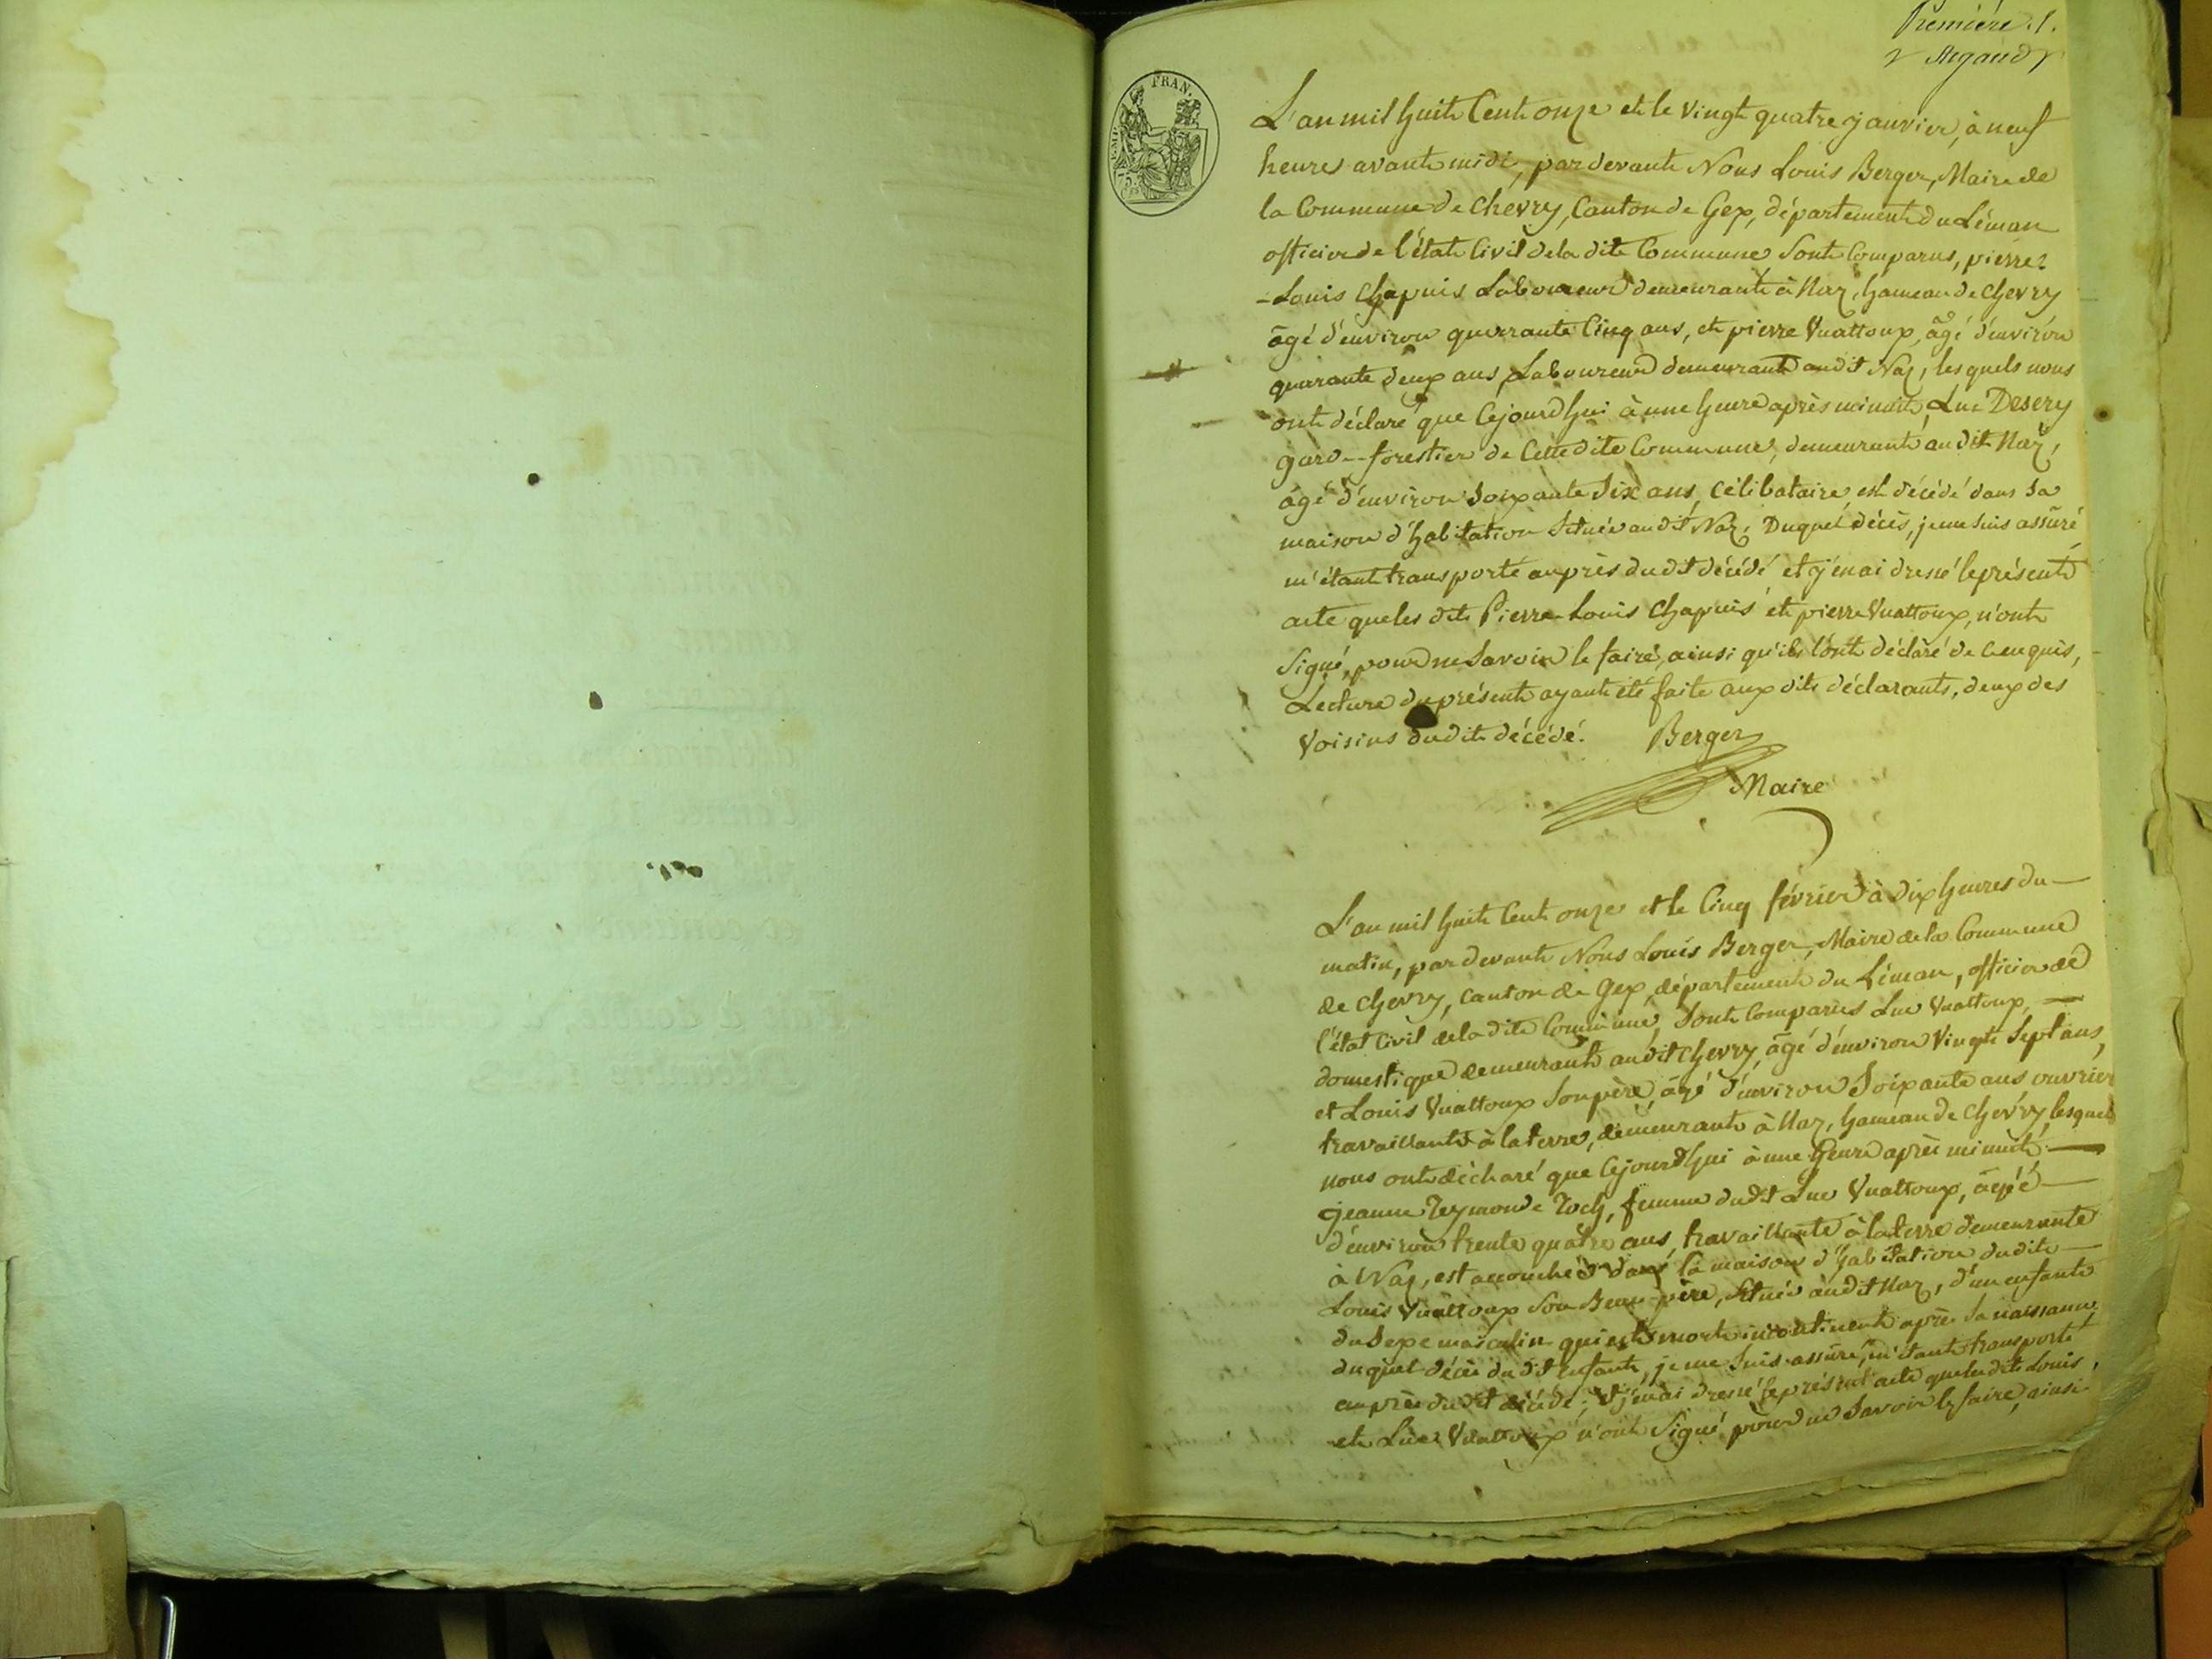 Première 1.
Argand
FRAN.
L'an mil huit Cent onze et le vingt quatre janvier, à neuf
heures avant midi, pardevant Nous Louis Berger, Maire de
la Commune de Chevry, Canton de Gex, département du Léman
officier de l'état Civil de la dite Commune sont Comparus, pierre
-Louis Chapuis Laboureur demeurant à Naz, hameau de Chevry
âgé d'environ quarrante Cinq ans, et pierre Vuattoux, âgé d'environ
quarante deux ans, Laboureur demeurant audit Naz, lesquels nous
ont déclaré que Cejourd'hui à une heure après minuit, Luc Desery
garde-forestier de Cettedite Commune, demeurant audit Naz,
âgé d'environ soixante six ans, célibataire, est décédé dans sa
maison d'habitation Située audit Naz. Duquel décès, je me suis assuré,
m'étant transporté auprès dudit décédé et j'en ai dressé le présent
acte que les dits Pierre-Louis Chapuis et pierre Vuattoux, n'ont
Signé, pour ne Savoir le faire, ainsi qu'ils l'ont déclaré de ce enquis,
Lecture du présent ayant été faite aux dits déclarants, deux des
Voisins dudit décédé. Berger
Maire
L'an mil huit Cent onze et le Cinq février à dix heures du
matin, pardevant Nous Louis Berger, Maire de la Commune
de Chevry, canton de Gex, département du Léman, officier de
l'état Civil de la dite Commune, Sont Comparus Luc Vuattoux,
domestique demeurant audit Chevry, âgé d'environ Vingt Sept ans,
et Louis Vuattoux Son père, âgé d'environ Soixante ans ouvrier
travaillant à la terre, demeurant à Naz, hameau de Chevry, lesquels
nous ont déclaré que Cejourd'hui à une heure après minuit
jeanne Reymonde Roch, femme dudit Luc Vuattoux, âgée
d'environ trente quatre ans, travaillante à la terre demeurante
à Naz, est accouchée dans la maison d'habitation dudit
Louis Vuattoux Son Beau-père, Située audit Naz, d'un enfant
du Sexe masculin qui est mort incontinent après Sa naissance,
duquel décès dudit enfant, je me Suis assuré, m'étant transporté
auprès dudit décédé; et j'en ai dressé le présent acte que les dits Louis
et Luc Vuattoux n'ont Signé pour ne Savoir le faire, ainsi